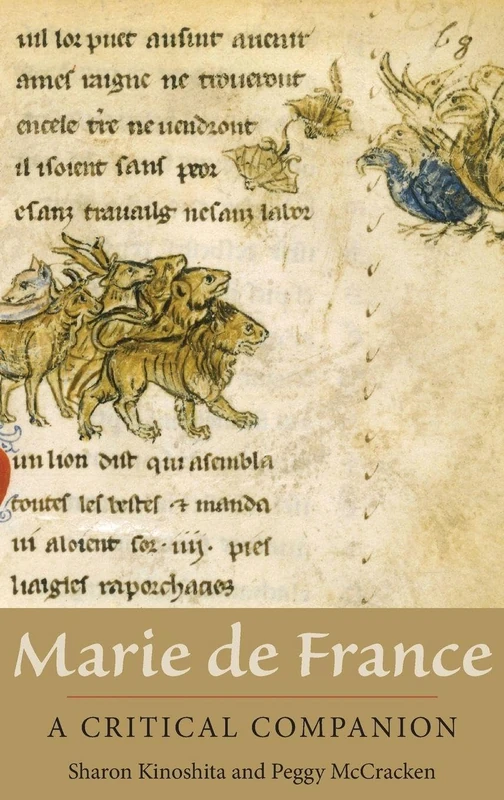 uil lor puet ausint auenir
ames raigne ne troueront
encele tr̃e ne uendront
il isoient sanz peor
esanz trauailg nesanz labor
69
un lion dist qui asembla
toutes les bestes ⁊ manda
ui aloient sor .iiij. piez
Marie de France
A CRITICAL COMPANION
Sharon Kinoshita and Peggy McCracken